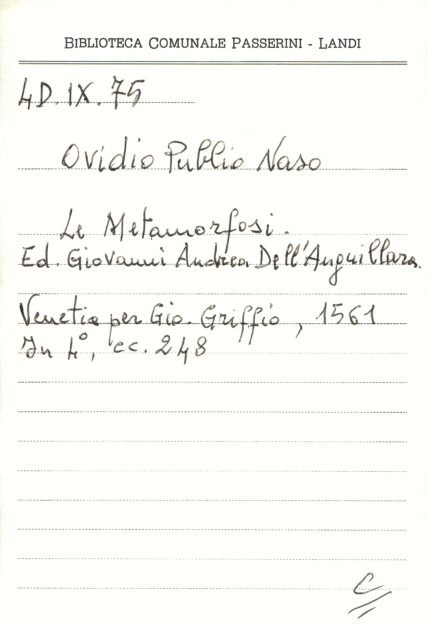 BIBLIOTECA COMUNALE PASSERINI - LANDI
4D.IX.75
Ovidio Publio Naso
Le Metamorfosi.
Ed. Giovanni Andrea Dell'Anguillara.
Venetia per Gio. Griffio, 1561
In 4°, cc. 248
C